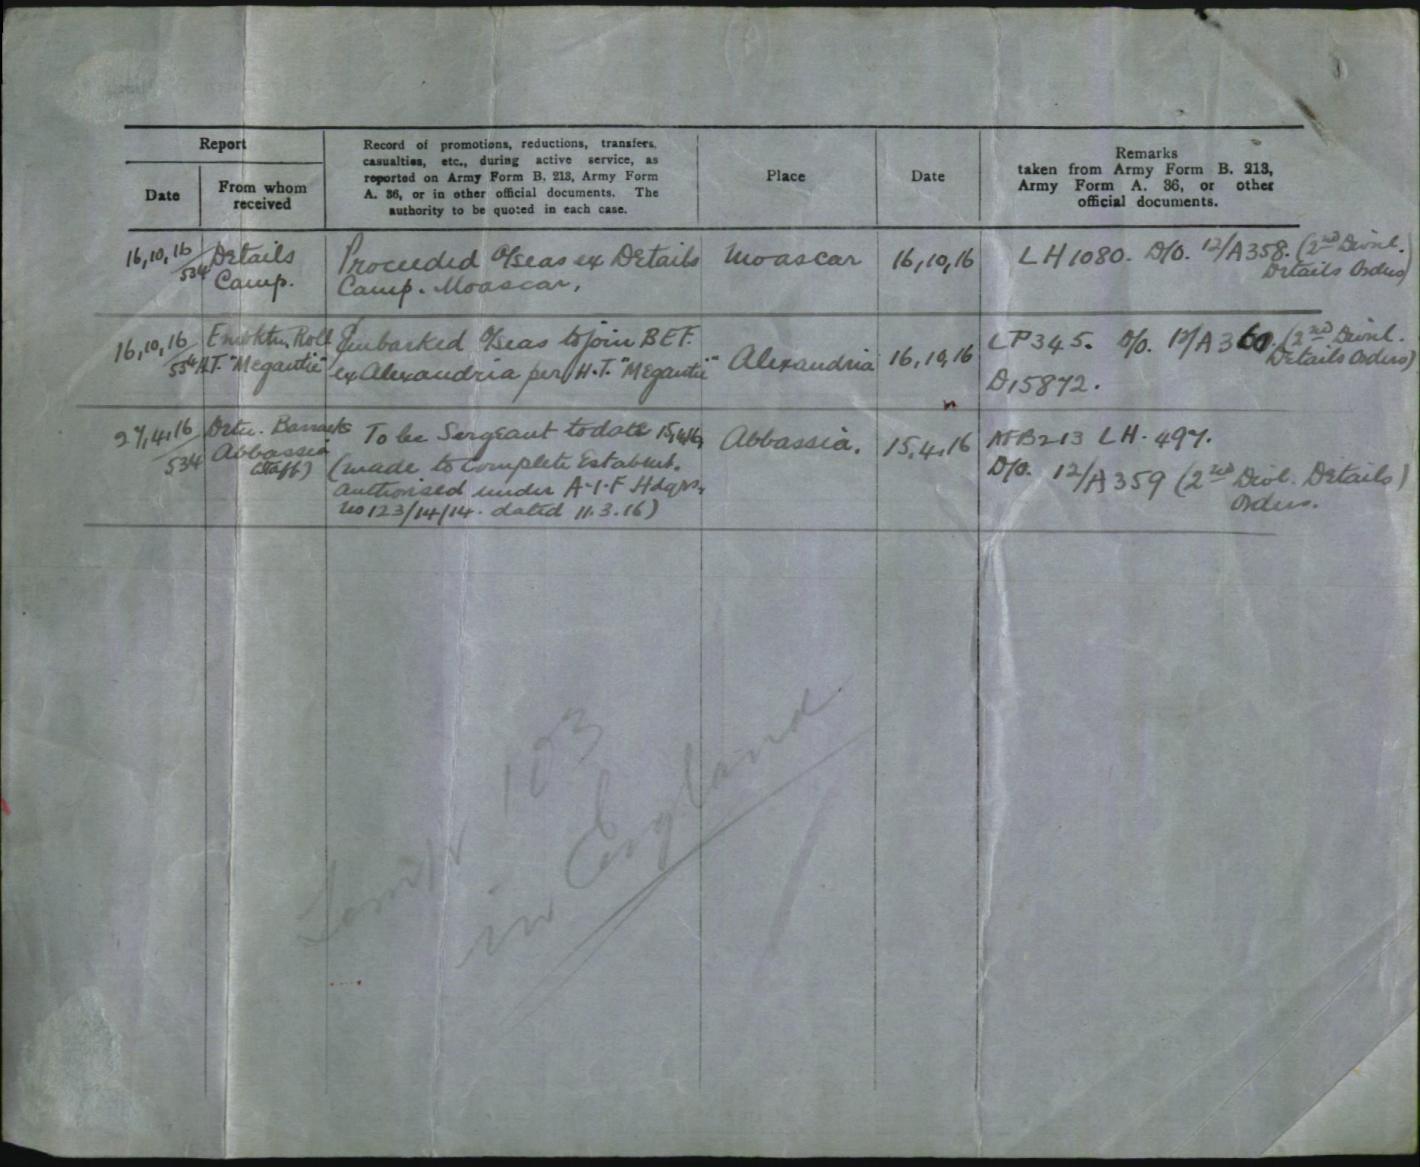 Report
Date
From whom
received
Record of promotions, reductions, transfers,
casualties, etc., during active service, as
reported on Army Form B. 213, Army Form
A. 36, or in other official documents. The
authority to be quoted in each case.
Place
Date
Remarks
taken from Army Form B. 213,
Army Form A. 36, or other
official documents.
16,10,16
534
Details
Camp.
Proceeded O/seas ex Details
Camp. Moascar,
Moascar
16,10,16
LH1080. D/O. 12/A358. (2nd Divnl.
Details Orders)
16,10,16
534
Embktn. Roll
H.T. "Megantic"
Embarked O/seas to join BEF.
ex Alexandria per H.T. "Megantic"
Alexandria
16,10,16
LP345. D/O. 12/A360. (2nd Divnl.
Details Orders)
D15872.
27,4,16
534
Detn. Barracks
Abbassia
(Staff)
To be Sergeant to date 15,4,16,
(made to complete Establmt.
authorised under A.I.F Hdqrs,
no 123/14/14. dated 11.3.16)
Abbassia.
15,4,16
AFB213 LH. 497.
D/O. 12/A359 (2nd Divl. Details)
Orders.
103
in England